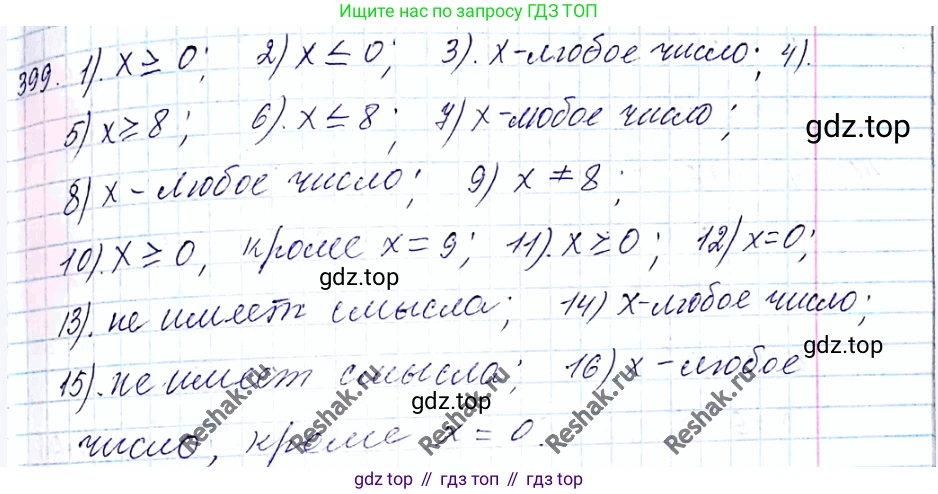 Ищите нас по запросу ГДЗ ТОП
399. 1). x ≥ 0; 2) x ≤ 0; 3). x - любое число; 4).
5) x ≥ 8; 6). x ≤ 8; 7) x - любое число;
gdz.top
8) x - любое число; 9) x ≠ 8;
10). x ≥ 0, кроме x = 9; 11). x ≥ 0; 12) x = 0;
gdz.top
13). не имеет смысла; 14) x - любое число;
gdz.top
15). не имеет смысла; 16) x - любое
gdz.top
число, кроме x = 0.
Reshak.ru Reshak.ru Reshak.ru Reshak.ru Reshak.ru
gdz.top // гдз.топ // гдз топ